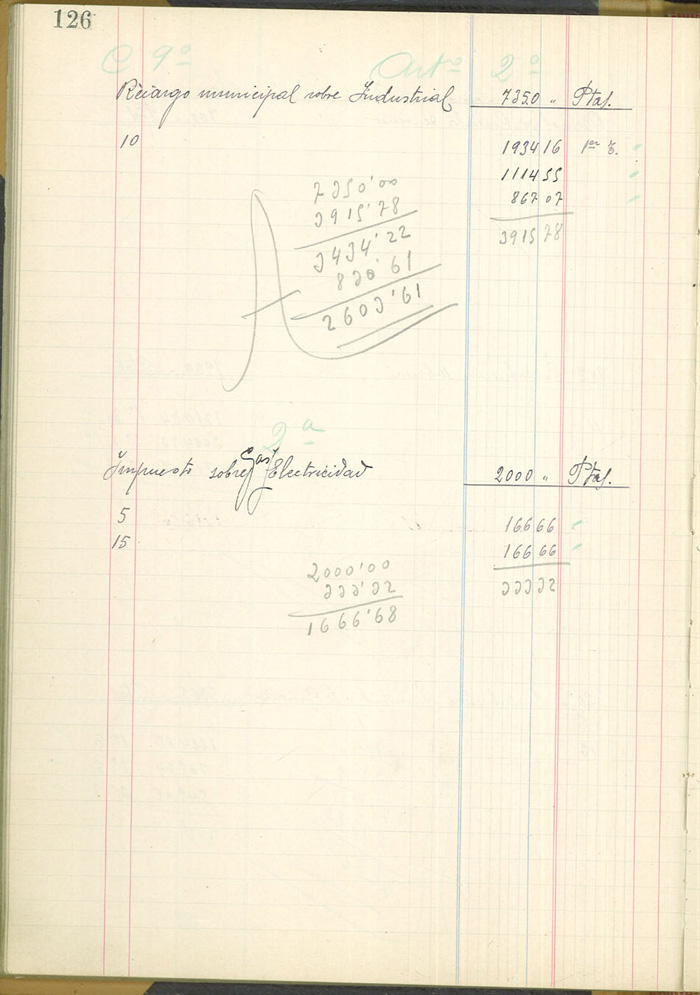 126
C 9º Artº 2º
Recargo municipal sobre Industrial 7350 " Ptas.
10 1934 16 1er t.
1114 55
867 07
3915 78
7350'00
3915'78
3434'22
830'61
2603'61
2ª
Impuesto sobre Gas y Electricidad 2000 " Ptas.
5 166 66
15 166 66
333 32
2000'00
333'32
1666'68